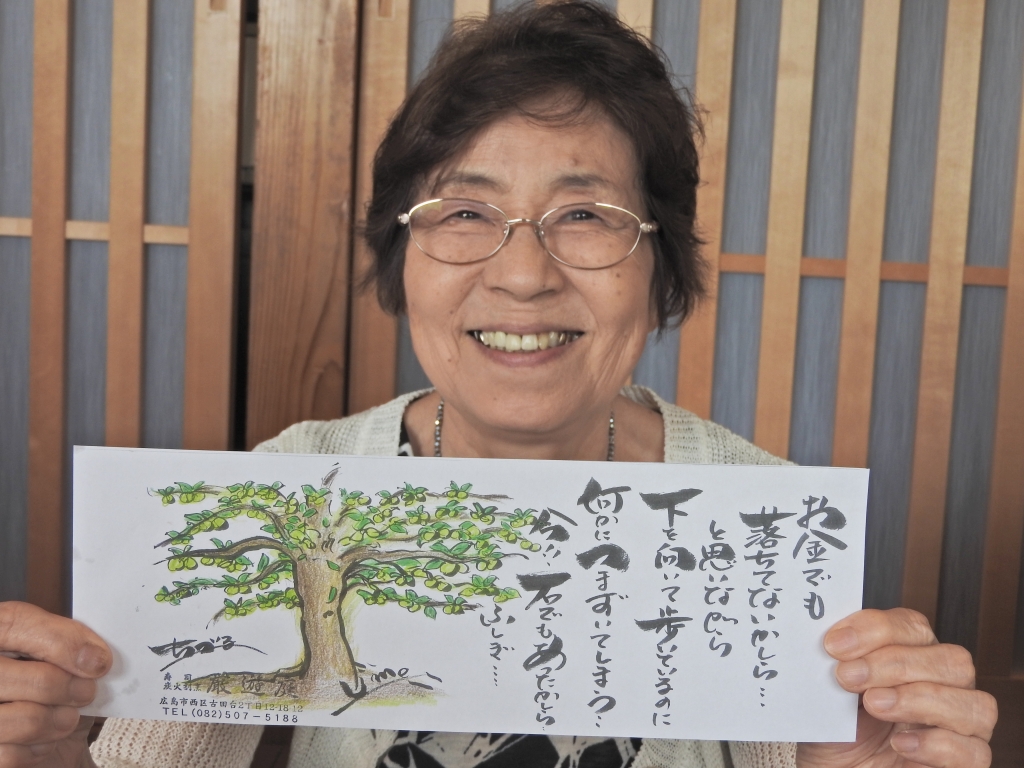 お金でも
落ちてないかしら…
と思いながら
下を向いて歩いているのに
何かにつまずいてしまう…
今!! 石でもあったかしら…
ふしぎ……
寿司
炭火割烹 巌遊庵
広島市西区古田台2丁目12-18-12
TEL(082)507-5188